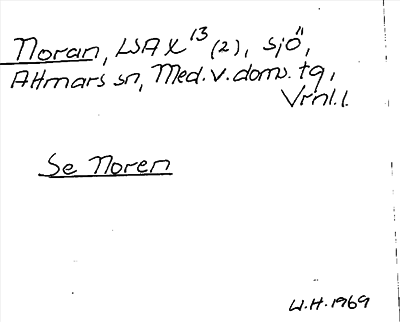 Noran, WAX 13 (2), sjö,
Attmars sn, Med. v. doms. tg,
Vrnl. l.
Se Noren
W.H. 1969